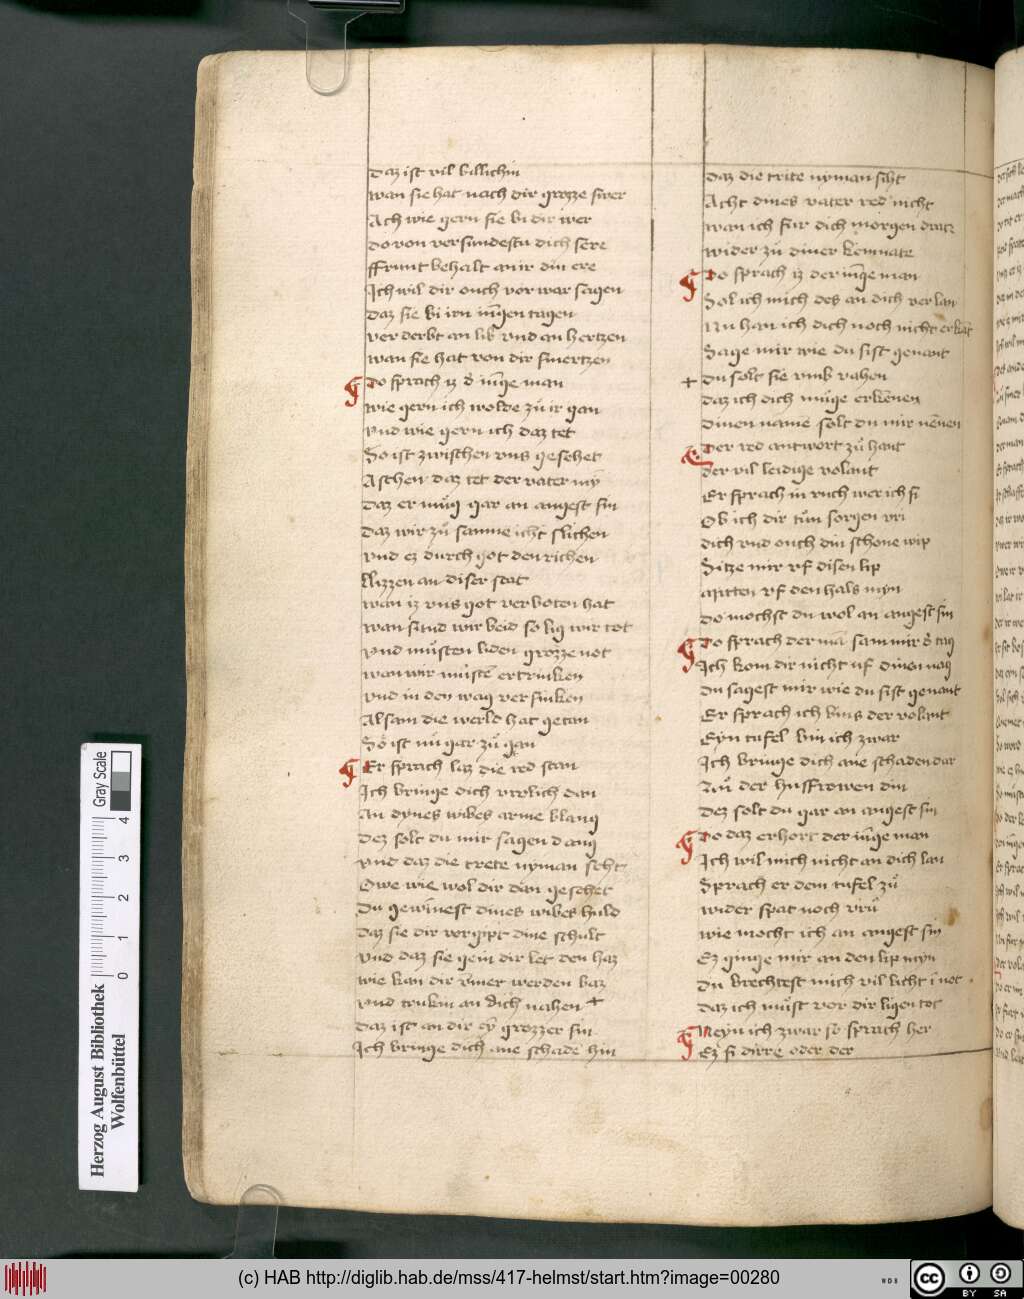 Daz ist vil billichin
wan sie hat nach dir grozze swer
Ach wie gern sie bi dir wer
do von versundestu dich sere
ffrunt behalt an ir din ere
Ich wil dir ouch vor war sagen
daz sie bi irn iu̅gen tagen
ver derbt an lib vnd an hertzen
wan sie hat von dir smertzen
Do sprach iz d̾ iu̅ge man
wie gern ich wolde zů ir gan
vnd wie gern ich daz tet
So ist zwischen vns geschet
Aschen daz tet der vater my̅
daz er mug gar an angest sin
daz wir zů samme icht slichen
vnd ez durch got den richen
Mizzen an diser stat
wan iz vns got verboten hat
wan sund wir beid so lig wir tot
vnd můsten liden grozze not
wan wir můste̅ ertrinken
vnd in den wag versinken
Alsam die werld hat getan
So ist nu gar zů gan
Er sprach laz die red stan
Ich bringe dich vrolich dan
An dynes wibes arme blang
Dez solt du mir sagen dang
vnd daz die trete nyman secht
Owe wie wol dir dan geschet
Du gewinest dines wibes huld
daz sie dir vorgypt dine schult
vnd daz sie gein dir let den haz
wie kan dir vmer werden baz
vnd trukin an dich nahen +
daz ist an dir ey̅ grozzer sin
Ich bringe dich ane schade hin
daz die trite nyman siht
Acht dines vater red nicht
wan ich fur dich morgen drat
wider zů diner kemnate
Do sprach iz der iu̅ge man
Sol ich mich des an dich verlan
Nu han ich dich noch nicht erkant
Sage mir wie du sist genant
+ du solt sie vmb vahen
daz ich dich můge erkenen
dinen name solt du mir nenen
Der red antwort zů hant
der vil leidige volant
Er sprach in ruch wer ich si
Ob ich dir tůn sorgen vri
dich vnd ouch din schone wip
Sitze mir vf disen lip
Mitten vf den hals myn
do mochst du wol an angest sin
Do sprach der ma̅ sam mir d̾ tag
Ich kom dir nicht uf dinen nag
du sagest mir wie du sist genant
Er sprach ich bins der volant
Eyn tufel bin ich zwar
Ich bringe dich ane schaden dar
zůr der husfrowen din
Dez solt du gar an angest sin
Do daz erhort der iu̅ge man
Ich wil mich nicht an dich lan
Sprach er dem tufel zů
wider spat noch vrů
wie mocht ich an angest sin
Ez ginge mir an den lip myn
du brechtest mich vil licht i̅ not
daz ich můst vor dir ligen tot
Neyn ich zwar so sprach her
Ez si dirre oder der
Herzog August Bibliothek
Wolfenbüttel
Gray Scale
0 1 2 3 4
(c) HAB http://diglib.hab.de/mss/417-helmst/start.htm?image=00280
WDB
cc BY SA